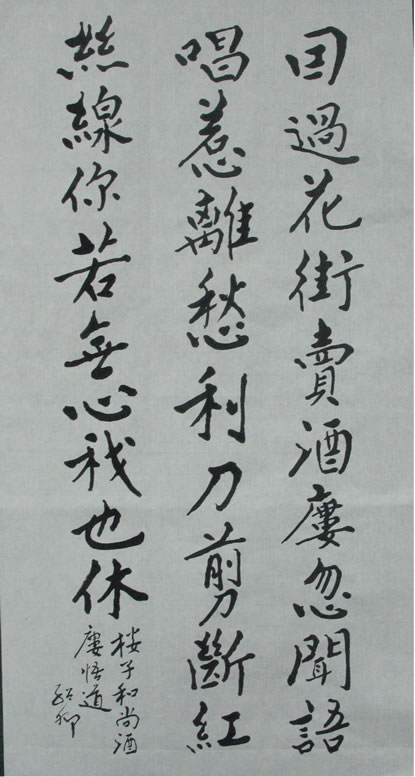 因過花街賣酒廔忽聞語
唱惹離愁利刀剪斷紅
絲線你若無心我也休
楼子和尚酒
廔悟道